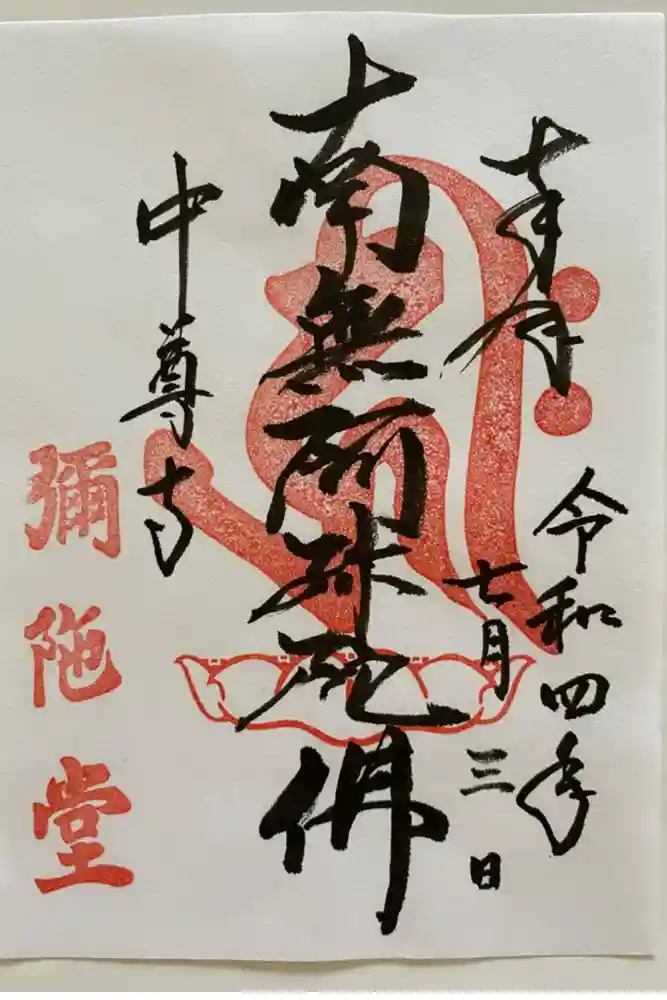 奉拝
令和四年
七月三日
南無阿弥陀佛
中尊寺
彌陀堂